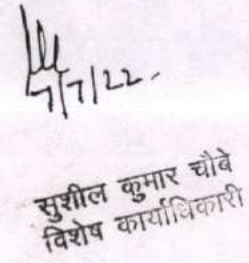 7/7/22
सुशील कुमार चौबे
विशेष कार्याधिकारी